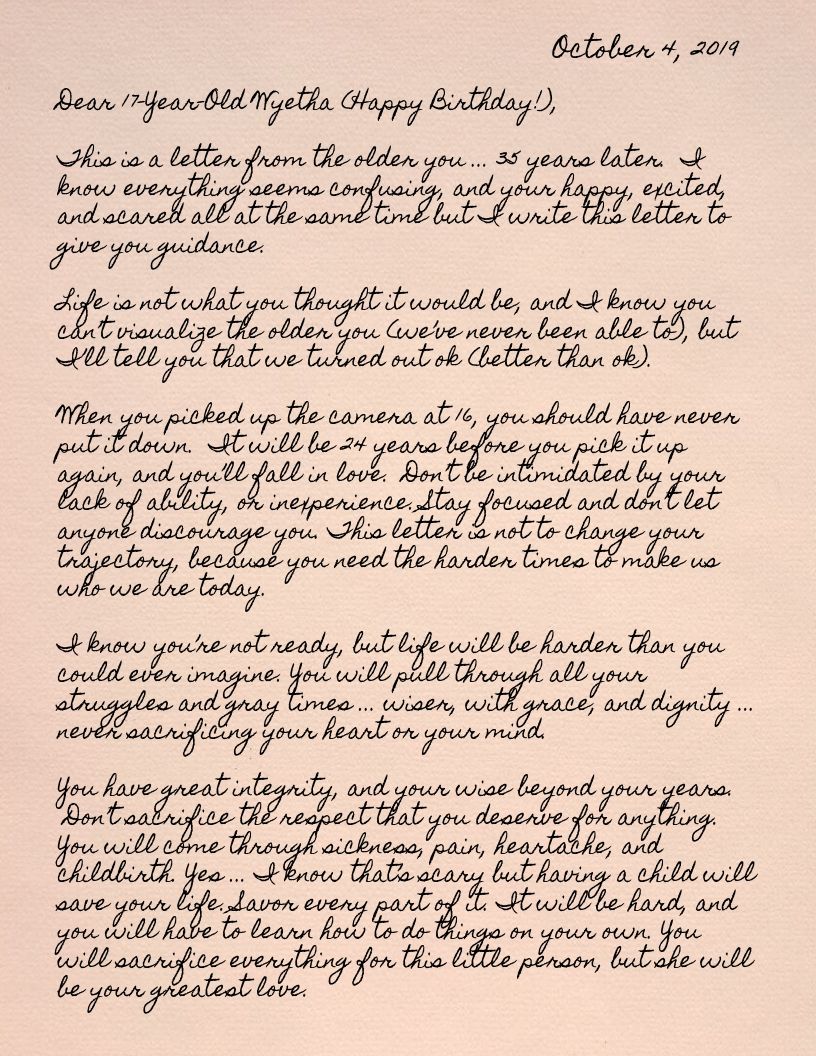 October 4, 2019
Dear 17-Year-Old Wyetha (Happy Birthday!),
This is a letter from the older you ... 35 years later. I
know everything seems confusing, and your happy, excited,
and scared all at the same time but I write this letter to
give you guidance.
Life is not what you thought it would be, and I know you
can't visualize the older you (we've never been able to), but
I'll tell you that we turned out ok (better than ok).
When you picked up the camera at 16, you should have never
put it down. It will be 24 years before you pick it up
again, and you'll fall in love. Don't be intimidated by your
lack of ability, or inexperience. Stay focused and don't let
anyone discourage you. This letter is not to change your
trajectory, because you need the harder times to make us
who we are today.
I know you're not ready, but life will be harder than you
could ever imagine. You will pull through all your
struggles and gray times ... wiser, with grace, and dignity ...
never sacrificing your heart or your mind.
You have great integrity, and your wise beyond your years.
Don't sacrifice the respect that you deserve for anything.
You will come through sickness, pain, heartache, and
childbirth. Yes ... I know that's scary but having a child will
save your life. Savor every part of it. It will be hard, and
you will have to learn how to do things on your own. You
will sacrifice everything for this little person, but she will
be your greatest love.